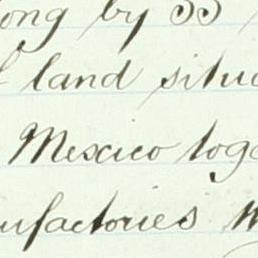 ong by 33
land situ
Mexico toge
ufactories w